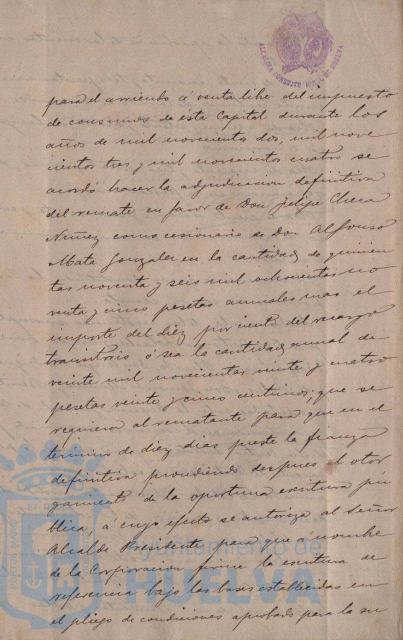 ALCALDIA CONSTITUCIONAL DE HUELVA
para el arriendo á venta libre del impuesto
de consumos de ésta Capital durante los
años de mil novecientos dos, mil nove
cientos tres y mil novecientos cuatro se
acordó hacer la adjudicacion definitiva
del remate en favor de Don Felipe Checa
Nuñez como cesionario de Don Alfonso
Mata Gonzalez en la cantidad de quinien
tas noventa y seis mil ochocientas no
venta y cinco pesetas anuales mas el
importe del diez por ciento del recargo
transitorio ó sea la cantidad anual de
veinte mil novecientas veinte y cuatro
pesetas veinte y cinco centimos; que se
requiera al rematante para que en el
termino de diez dias preste la fianza
definitiva procediendo despues al otor
gamiento de la oportuna escritura pú
blica, á cuyo efecto se autoriza al Señor
Alcalde Presidente para que á nombre
de la Corporacion firme la escritura de
referencia bajo las bases establecidas en
el pliego de condiciones aprobado para la su
Ayuntamiento de
HUELVA